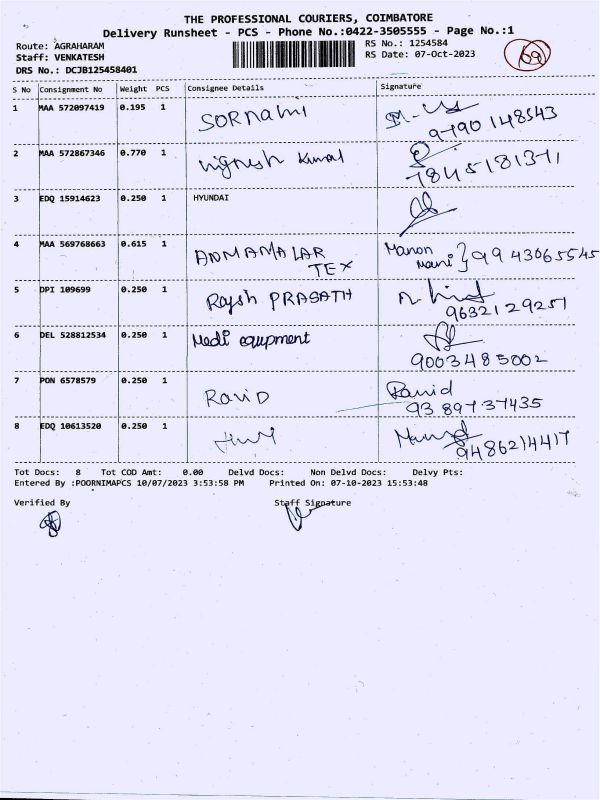 THE PROFESSIONAL COURIERS, COIMBATORE
Delivery Runsheet - PCS - Phone No.:0422-3505555 - Page No.:1
Route: AGRAHARAM RS No.: 1254584
Staff: VENKATESH RS Date: 07-Oct-2023
DRS No.: DCJB125458401
69
S No Consignment No Weight PCS Consignee Details Signature
1 MAA 572097419 0.195 1 SORNAMI
9790148543
2 MAA 572867346 0.770 1 Vignesh Kumal
7845181371
3 EDQ 15914623 0.250 1 HYUNDAI
4 MAA 569768663 0.615 1 ANMAMALAR TEX Manon mani } 9943065545
5 DPI 109699 0.250 1 Rajesh PRASATH
9632129257
6 DEL 528812534 0.250 1 Medi equpment
9003485002
7 PON 6578579 0.250 1 RaviD Ravid
9389737435
8 EDQ 10613520 0.250 1
9486214417
Tot Docs: 8 Tot COD Amt: 0.00 Delvd Docs: Non Delvd Docs: Delvy Pts:
Entered By :POORNIMAPCS 10/07/2023 3:53:58 PM Printed On: 07-10-2023 15:53:48
Verified By Staff Signature